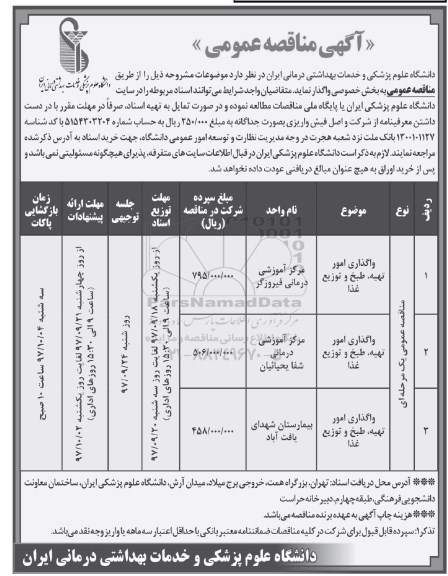 « آگهی مناقصه عمومی »
دانشگاه علوم پزشکی و خدمات بهداشتی درمانی ایران در نظر دارد موضوعات مشروحه ذیل را از طریق
مناقصه عمومی به بخش خصوصی واگذار نماید. متقاضیان واجد شرایط می‌توانند اسناد مربوطه را در سایت
دانشگاه علوم پزشکی ایران یا پایگاه ملی مناقصات مطالعه نموده و در صورت تمایل به تهیه اسناد، صرفاً در مهلت مقرر با در دست
داشتن معرفینامه از شرکت و اصل فیش واریزی بصورت جداگانه به مبلغ ۲۵۰/۰۰۰ ریال به حساب شماره ۵۱۵۴۳۰۳۲۰۴ با کد شناسه
۱۳۰۰۱۰۱۱۲۷ بانک ملت نزد شعبه هجرت در وجه مدیریت نظارت و توسعه امور عمومی دانشگاه، جهت خرید اسناد به آدرس ذکر شده
مراجعه نمایند. لازم به ذکر است دانشگاه علوم پزشکی ایران در قبال اطلاعات سایت های متفرقه، پذیرای هیچگونه مسئولیتی نمی باشد و
پس از خرید اوراق به هیچ عنوان مبالغ دریافتی عودت داده نخواهد شد.
ردیف نوع موضوع نام واحد مبلغ سپرده شرکت در مناقصه (ریال) مهلت توزیع اسناد جلسه توجیهی مهلت ارائه پیشنهادات زمان بازگشایی پاکات
۱ واگذاری امور تهیه، طبخ و توزیع غذا مرکز آموزشی درمانی فیروزگر ۷۹۵/۰۰۰/۰۰۰
۲ واگذاری امور تهیه، طبخ و توزیع غذا مرکز آموزشی درمانی شفا یحیائیان ۵۰۶/۰۰۰/۰۰۰
۳ واگذاری امور تهیه، طبخ و توزیع غذا بیمارستان شهدای یافت آباد ۴۵۸/۰۰۰/۰۰۰
مناقصه عمومی یک مرحله ای
از روز یکشنبه ۹۷/۰۹/۱۸ لغایت روز سه شنبه ۹۷/۰۹/۲۰
(ساعت ۹ الی ۱۵:۳۰ روزهای اداری)
روز شنبه ۹۷/۰۹/۲۴
از روز چهارشنبه ۹۷/۰۹/۲۱ لغایت روز یکشنبه ۹۷/۱۰/۰۲
(ساعت ۹ الی ۱۵:۳۰ روزهای اداری)
سه شنبه ۹۷/۱۰/۰۴ ساعت ۱۰ صبح
ParsNamadData
*** آدرس محل دریافت اسناد: تهران، بزرگراه همت، خروجی برج میلاد، میدان آرش، دانشگاه علوم پزشکی ایران، ساختمان معاونت
دانشجویی فرهنگی، طبقه چهارم، دبیرخانه حراست
*** هزینه چاپ آگهی به عهده برنده مناقصه می باشد.
تذکر۱: سپرده قابل قبول برای شرکت در کلیه مناقصات ضمانتنامه معتبر بانکی با حداقل اعتبار سه ماهه یا واریز وجه نقد می باشد.
دانشگاه علوم پزشکی و خدمات بهداشتی درمانی ایران